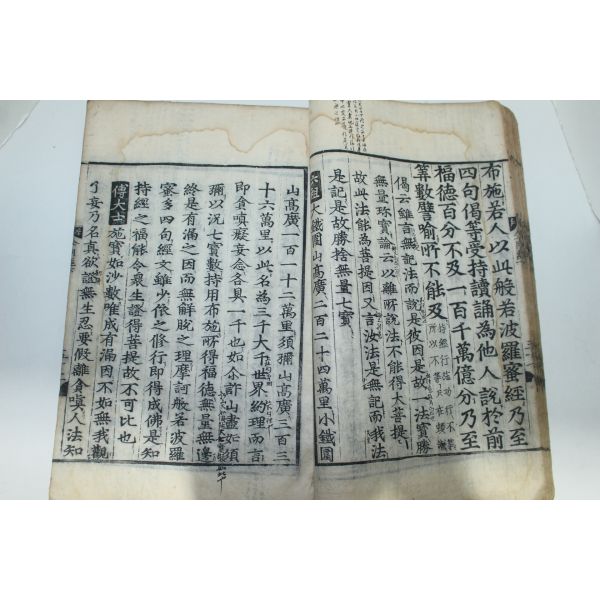 布施若人以此般若波羅蜜經乃至
四句偈等受持讀誦為他人說於前
福德百分不及一百千萬億分乃至
筭數譬喻所不能及
偈云雖言無記法而說是彼因是故一法寶勝
無量珎寶論云以離所說法不能得大菩提
故此法能為菩提因又言汝法是無記而我法
是記是故勝捨無量七寶
六祖 大鐵圍山高廣二百二十四萬里小鐵圍
山高廣一百一十二萬里須彌山高廣三百三
十六萬里以此名為三千大千世界約理而言
即貪嗔癡妄念各具一千也如尒許山盡如須
彌以況七寶數持用布施所得福德無量無邊
終是有漏之因而無解脫之理摩訶般若波羅
蜜多四句經文雖少依之修行即得成佛是知
持經之福能令衆生證得菩提故不可比也
傅大士 施寶如沙數唯成有漏因不如無我觀
了妄乃名真欲證無生忍要假離貪嗔人法知